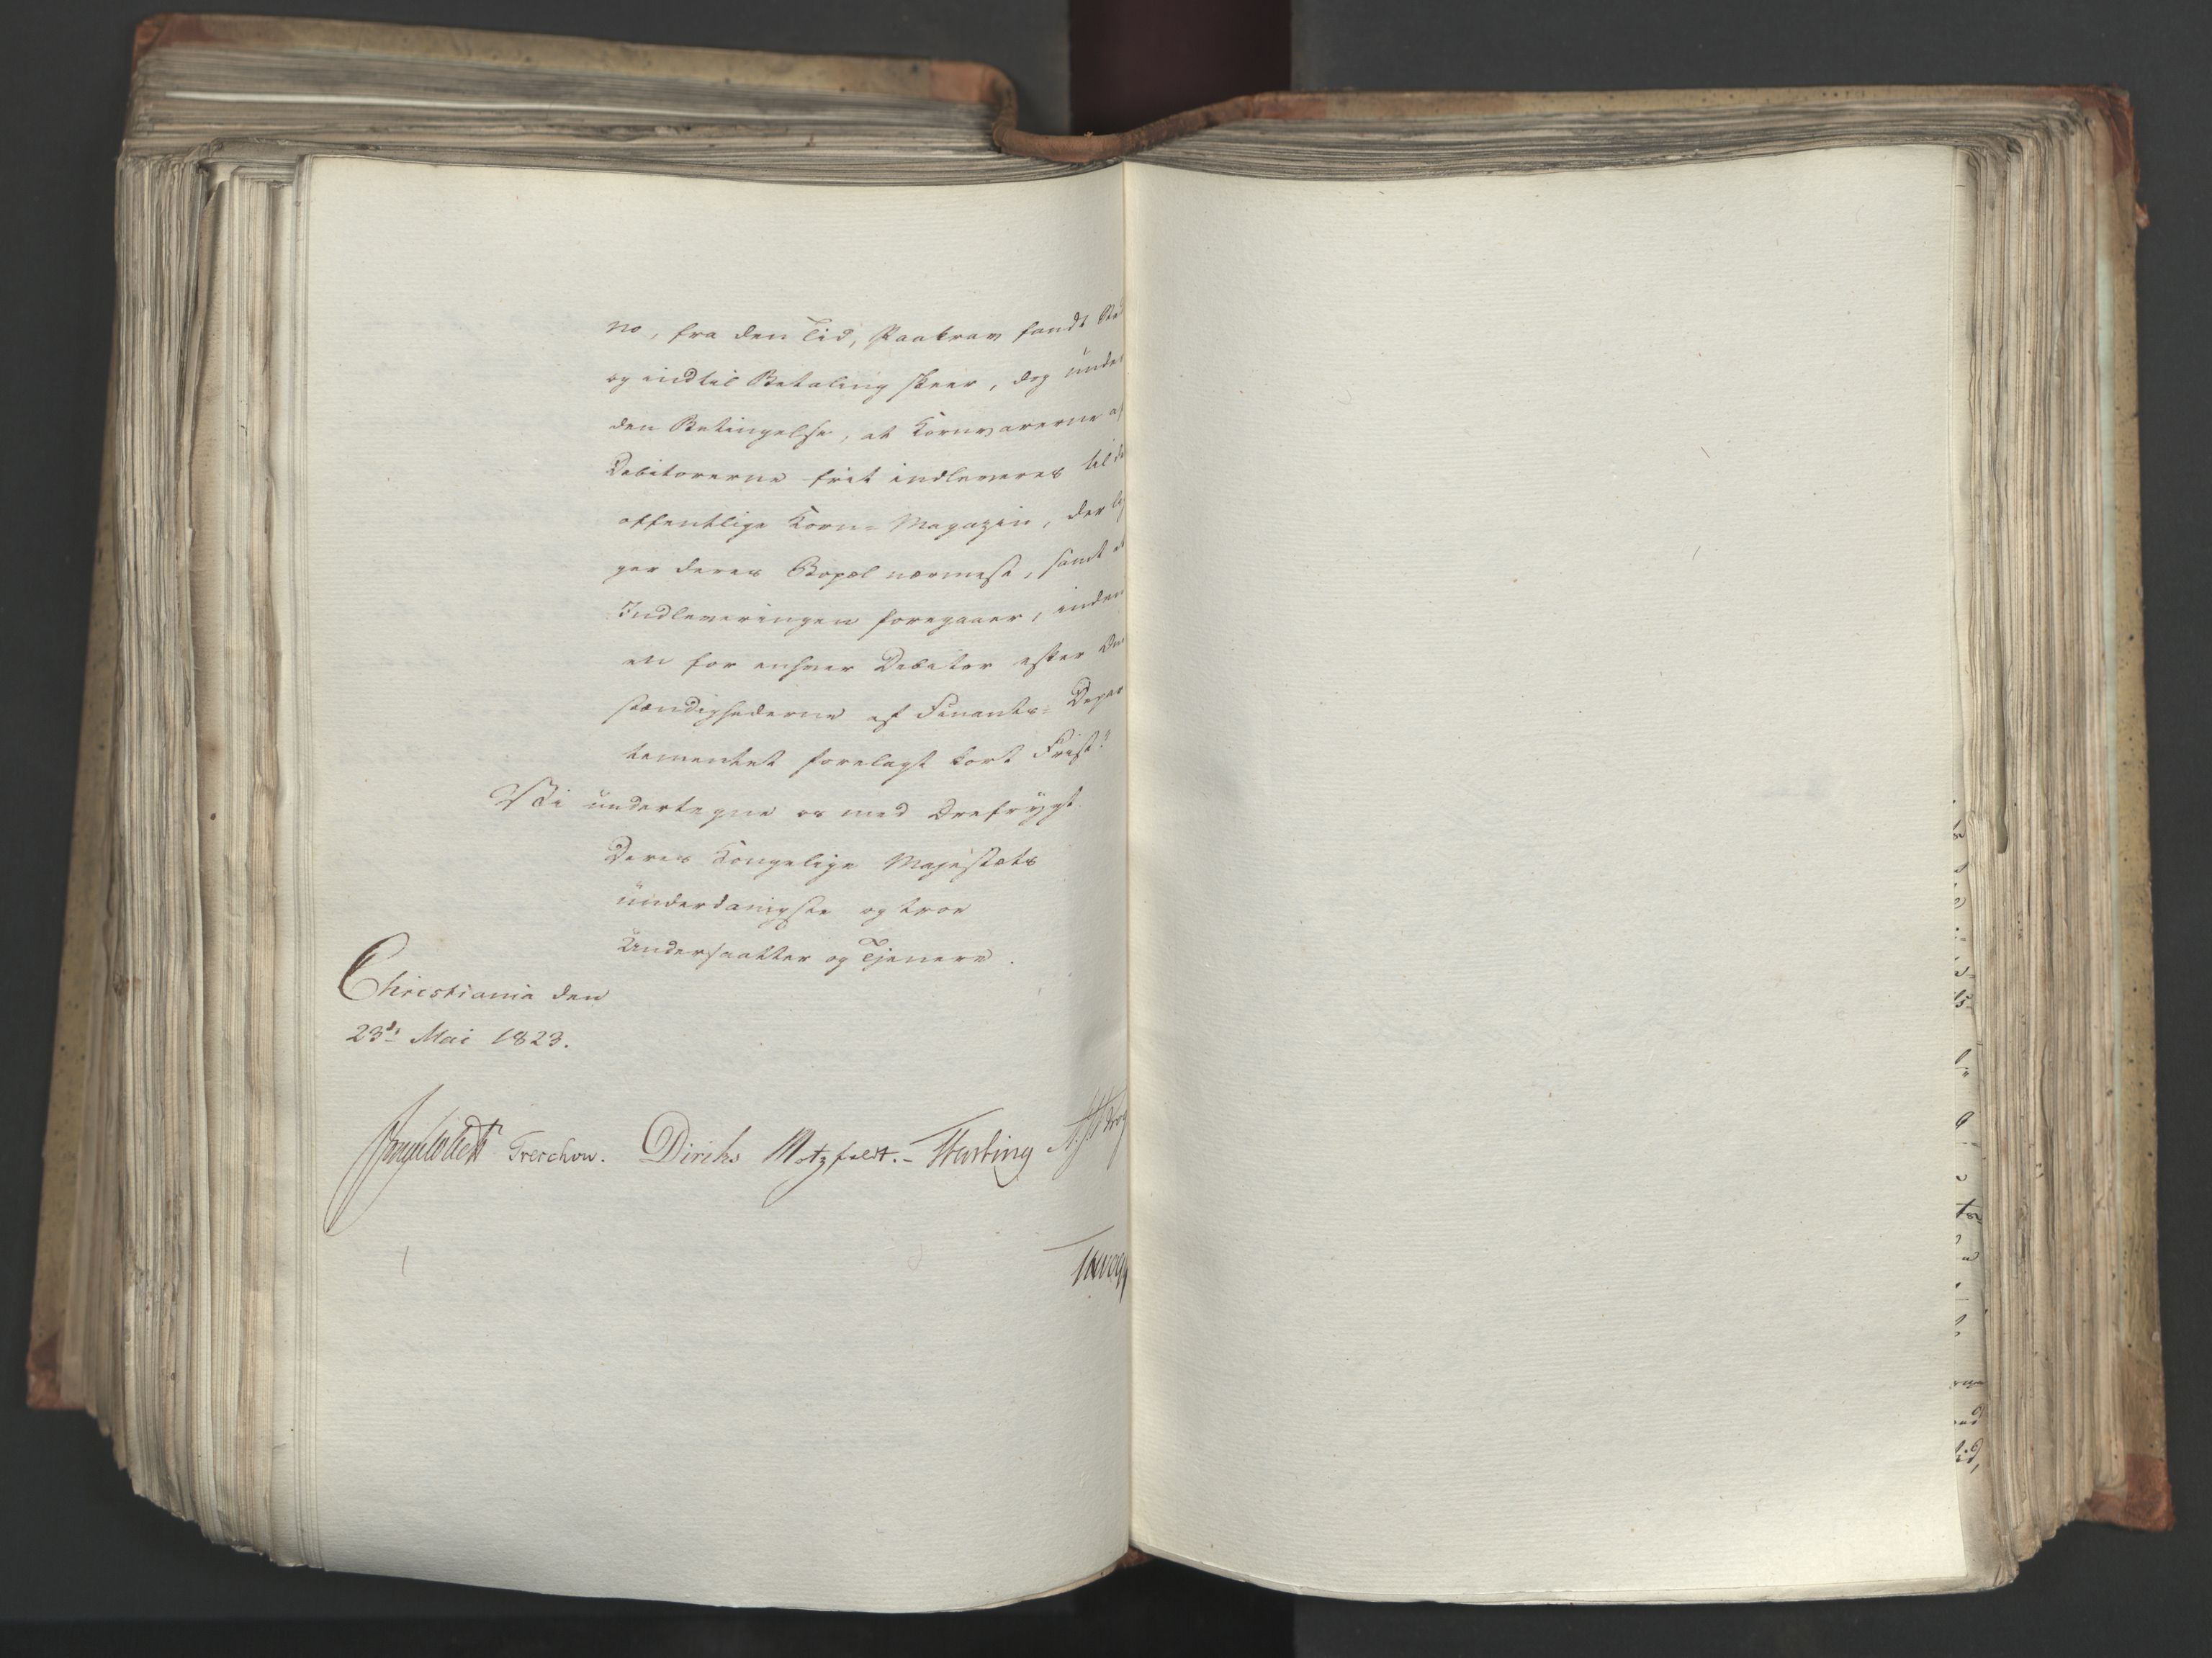 no, fra den Tid, Paakrav fandt Sted
og indtil Betaling skeer, dog under
den Betingelse, at Kornvarerne af
Debitorerne frit indleveres til de
offentlige Korn- Magazin, der lig
ger deres Bopæl nærmest, samt at
Indleveringen foregaaer, inden
en for enhver Debitor efter Om
stændighederne af Finants- Depar
tementet forelagt kort Frist."
Vi undertegne os med Ærefrygt
Deres Kongelige Majestæts
underdanigste og troe
Undersaatter og Tjenere.
Christiania den
23d: Mai 1823.
Treschow. Diriks Motzfeldt. Fasting